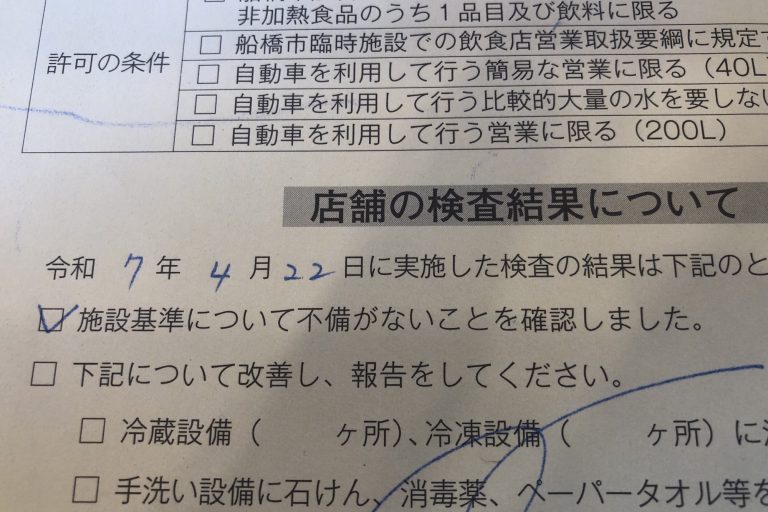 非加熱食品のうち1品目及び飲料に限る
許可の条件
□ 船橋市臨時施設での飲食店営業取扱要綱に規定す
□ 自動車を利用して行う簡易な営業に限る（40L
□ 自動車を利用して行う比較的大量の水を要しない
□ 自動車を利用して行う営業に限る（200L）
店舗の検査結果について
令和 7 年 4 月 22 日に実施した検査の結果は下記のと
☑ 施設基準について不備がないことを確認しました。
□ 下記について改善し、報告をしてください。
□ 冷蔵設備（　　ヶ所）、冷凍設備（　　ヶ所）に
□ 手洗い設備に石けん、消毒薬、ペーパータオル等を